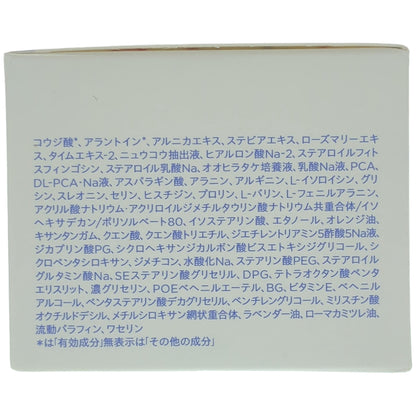 コウジ酸*、アラントイン*、アルニカエキス、ステビアエキス、ローズマリーエキ
ス、タイムエキス-2、ニュウコウ抽出液、ヒアルロン酸Na-2、ステアロイルフィト
スフィンゴシン、ステアロイル乳酸Na、オオヒラタケ培養液、乳酸Na液、PCA、
DL-PCA・Na液、アスパラギン酸、アラニン、アルギニン、L-イソロイシン、グリ
シン、スレオニン、セリン、ヒスチジン、プロリン、L-バリン、L-フェニルアラニン、
アクリル酸ナトリウム・アクリロイルジメチルタウリン酸ナトリウム共重合体/イソ
ヘキサデカン/ポリソルベート80、イソステアリン酸、エタノール、オレンジ油、
キサンタンガム、クエン酸、クエン酸トリエチル、ジエチレントリアミン5酢酸5Na液、
ジカプリン酸PG、シクロヘキサンジカルボン酸ビスエトキシジグリコール、シク
ロペンタシロキサン、ジメチコン、水酸化Na、ステアリン酸PEG、ステアロイル
グルタミン酸Na、SEステアリン酸グリセリル、DPG、テトラオクタン酸ペンタ
エリスリット、濃グリセリン、POEベヘニルエーテル、BG、ビタミンE、ベヘニル
アルコール、ペンタステアリン酸デカグリセリル、ペンチレングリコール、ミリスチン酸
オクチルドデシル、メチルシロキサン網状重合体、ラベンダー油、ローマカミツレ油、
流動パラフィン、ワセリン
*は「有効成分」無表示は「その他の成分」